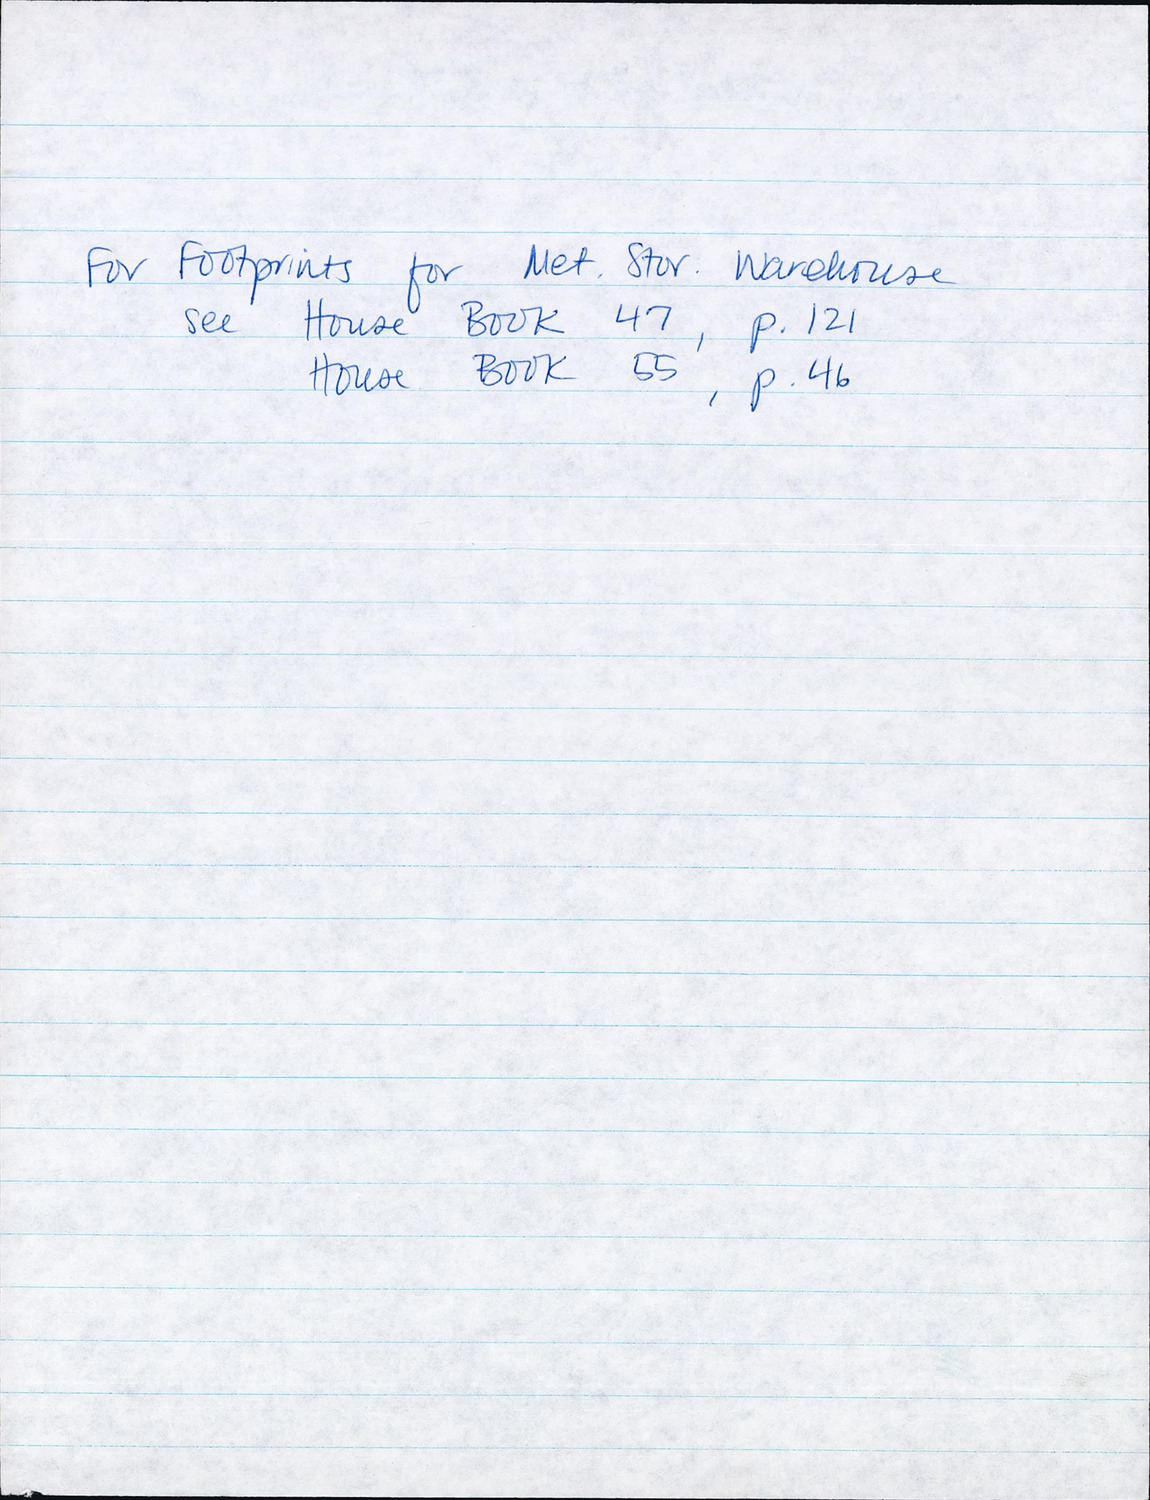 For Footprints for Met. Stor. Warehouse
see House Book 47, p. 121
House Book 55, p. 46